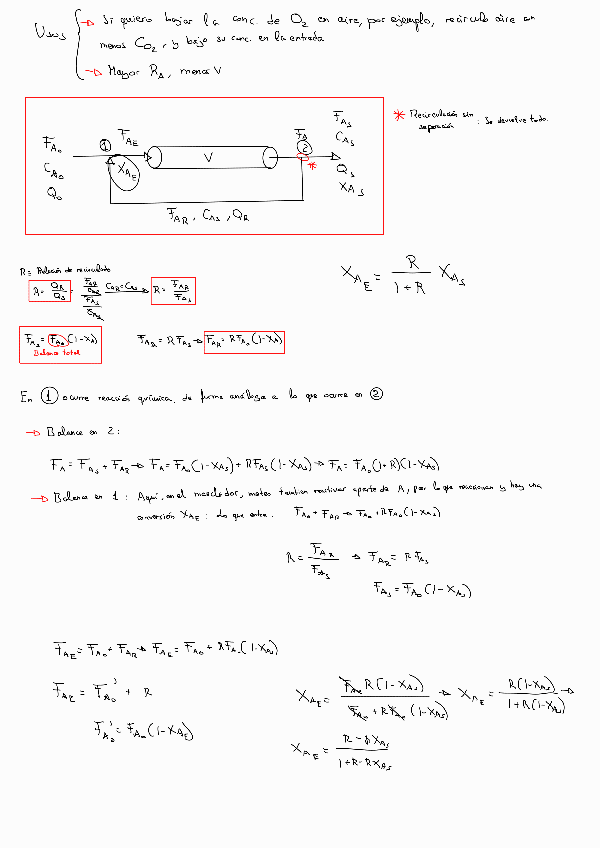 Usos
→ Si quiero bajar la conc. de O2 en aire, por ejemplo, recirculo aire con
menos CO2, y bajo su conc. en la entrada
→ Mayor RA, menos V
FA0
CA0
Q0
1
FAE
XAE
V
FA
2
*
FAS
CAS
QS
XAS
FAR, CAS, QR
* Recirculación sin
separación : Se devuelve todo.
R = Relación de recirculado
R = QR/QS = CAR = CAS → R = FAR/FAS
XAE = R/(1+R) XAS
FAS = FA0 (1-XA)
Balance total
FAR = R FAS → FAR = R FA0 (1-XA)
En 1 ocurre reacción química, de forma análoga a lo que ocurre en 2
→ Balance en 2:
FA = FAS + FAR → FA = FA0(1-XAS) + R FAS(1-XAS) → FA = FA0(1+R)(1-XAS)
→ Balance en 1: Aquí, en el mezclador, metes también reactivar aparte de A, por lo que reaccionan y hay una
conversión XAE: Lo que entra: FA0 + FAR → FA0 + R FA0 (1-XAS)
R = FAR/FAS → FAR = R FAS
FAS = FA0 (1-XAS)
FAE = FA0 + FAR → FAE = FA0 + R FA0 (1-XAS)
FAE = FA0' + R
FA0' = FA0 (1-XAE)
XAE = FA0 R(1-XAS)/(FA0 + R FA0 (1-XAS)) → XAE = R(1-XAS)/(1+R(1-XAS)) →
XAE = (R - RXAS)/(1+R-RXAS)